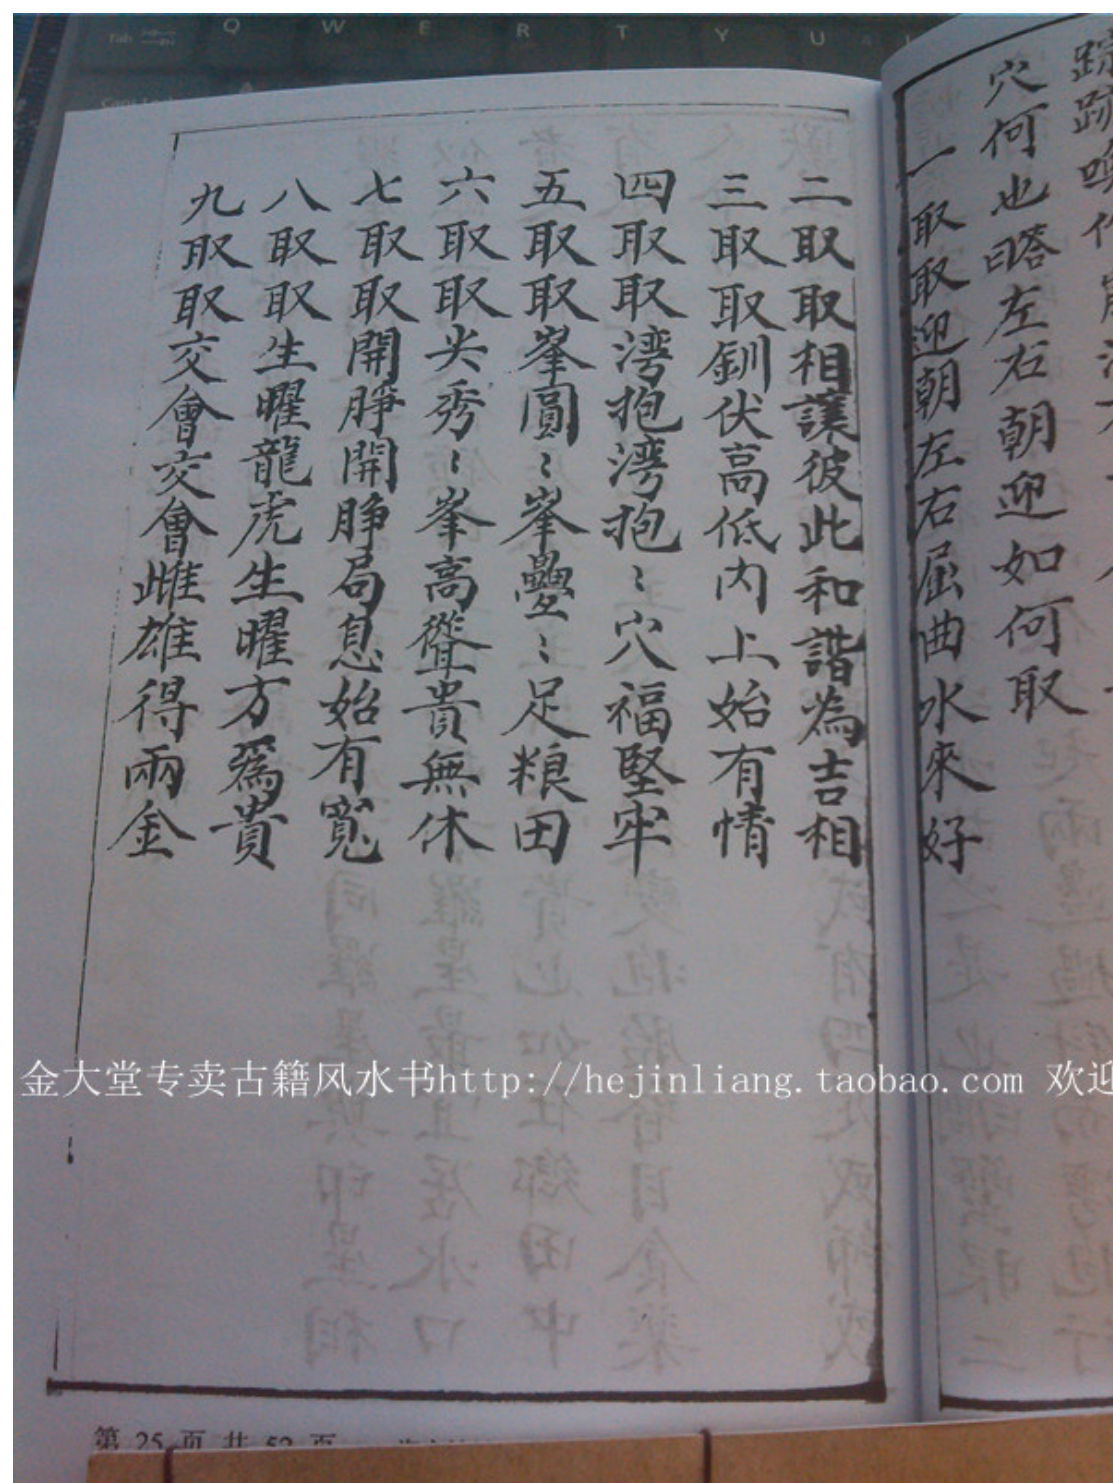 穴何也答曰左右朝迎如何取
一取取迎朝左右屈曲水來好
二取取相讓彼此和諧為吉相
三取取釧伏高低内上始有情
四取取湾抱湾抱〻穴福堅牢
五取取峯圓〻峯疊〻足粮田
六取取尖秀〻峯高聳貴無休
七取取開睜開睜局息始有寬
八取取生曜龍虎生曜方為貴
九取取交會交會雌雄得兩金
金大堂专卖古籍风水书http://hejinliang.taobao.com 欢迎
第 25 页 共 52 页
Tab Q W E R T Y U